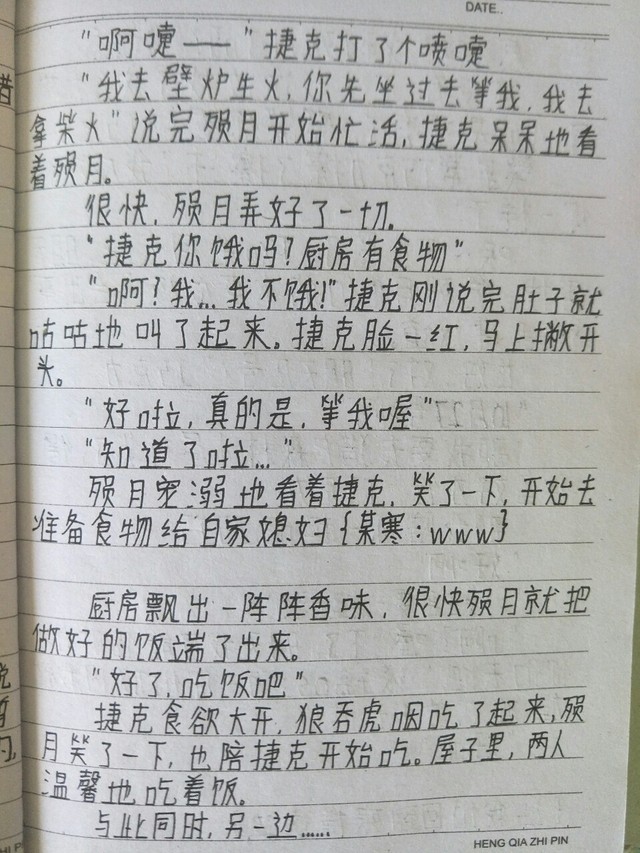 DATE..
"啊嚏——"捷克打了个喷嚏
"我去壁炉生火,你先坐过去等我,我去
拿柴火"说完殒月开始忙活,捷克呆呆地看
着殒月。
很快,殒月弄好了一切。
"捷克你饿吗?厨房有食物"
"啊?我...我不饿!"捷克刚说完肚子就
咕咕地叫了起来。捷克脸一红,马上撇开
头。
"好啦,真的是,等我喔"
"知道了啦..."
殒月宠溺地看着捷克,笑了一下,开始去
准备食物给自家媳妇{某寒:www}
厨房飘出一阵阵香味,很快殒月就把
做好的饭端了出来。
"好了,吃饭吧"
捷克食欲大开,狼吞虎咽吃了起来,殒
月笑了一下,也陪捷克开始吃。屋子里,两人
温馨地吃着饭。
与此同时,另一边......
HENG QIA ZHI PIN